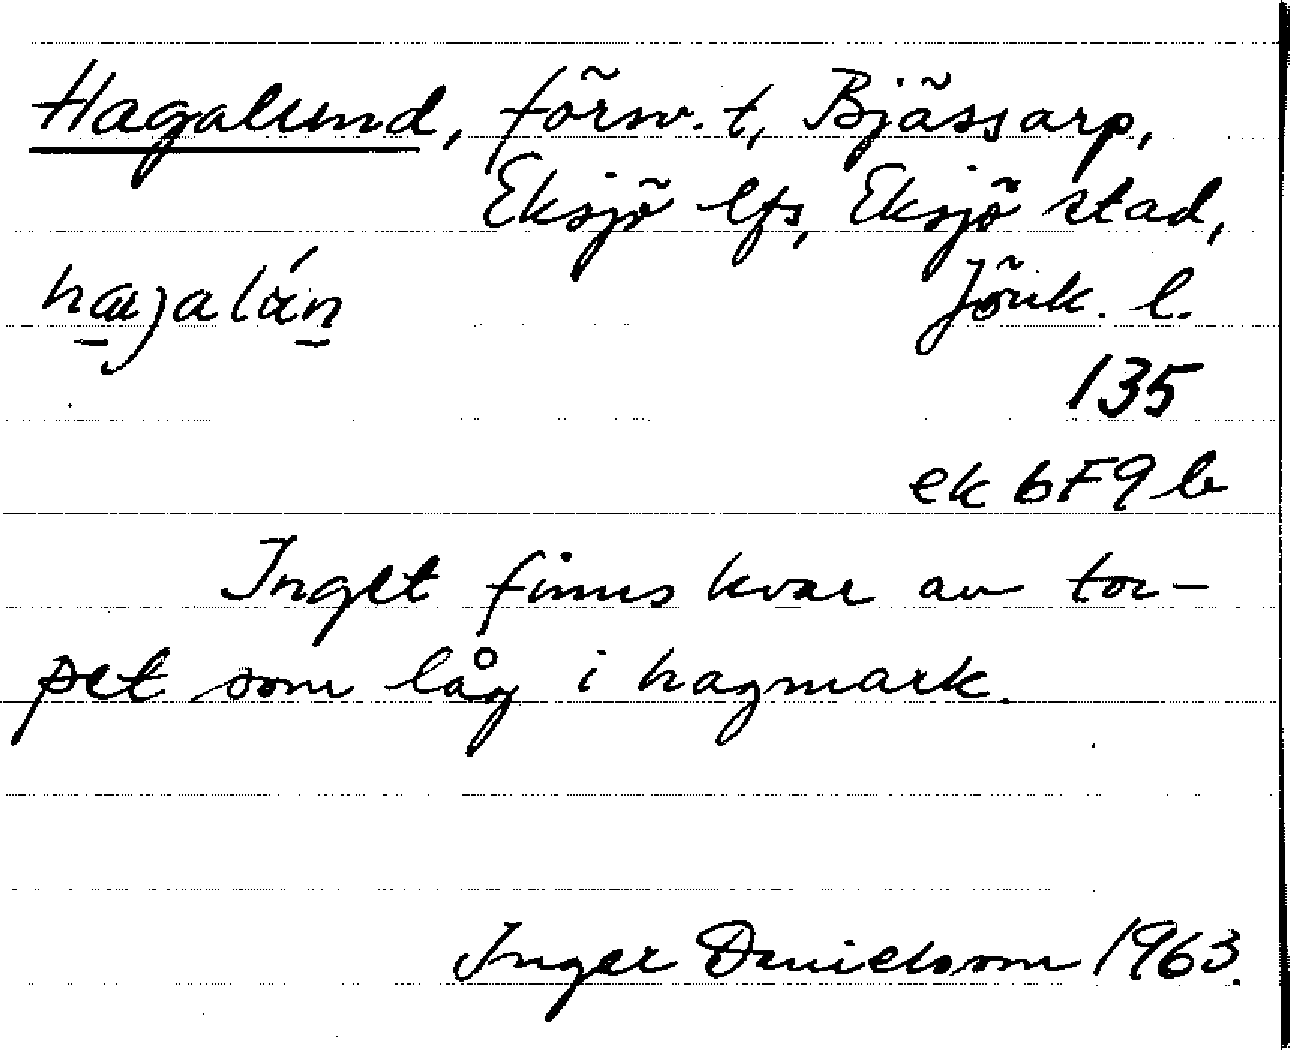 Hagalund, försv. t, Bjässarp,
Eksjö lfs, Eksjö stad,
Jönk. l.
135
ek 6F9b
Inget finns kvar av tor-
pet som låg i hagmark.
Inger Danielsson 1963.